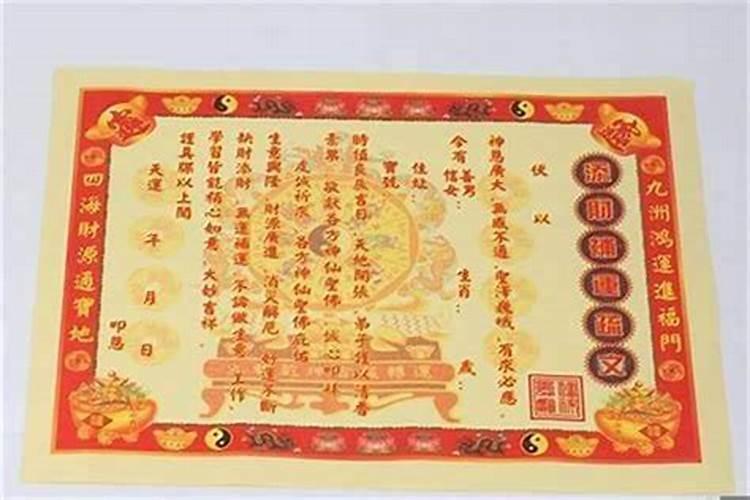 九洲鴻運進福門
添財補運疏文
伏以
神恩廣大 無感不通 聖澤巍峨 有求必應
今有 善男 信女： 生肖： 歲：
住址：
寶號
時值良辰吉日 天地開張 弟子謹以清香
素果 敬獻各方神仙聖佛 誠心叩拜
虔誠祈求 各方神仙聖佛庇佑
生意興隆 財源廣進 消災解厄 好運不斷
缺財添財 無運補運 不論做生意、工作、
學習皆能稱心如意 大妙吉祥。
謹具疏以上聞
天運 年 月 日
叩懇
四海財源通寶地